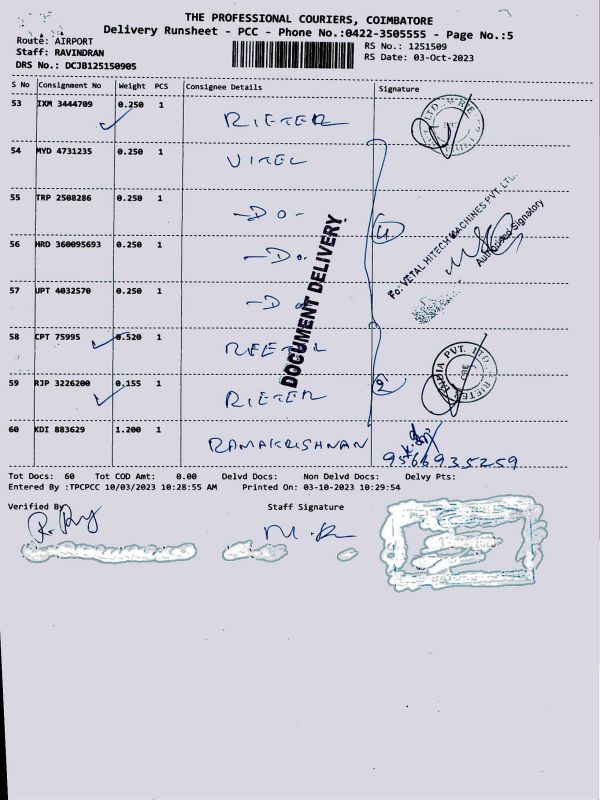 THE PROFESSIONAL COURIERS, COIMBATORE
Delivery Runsheet - PCC - Phone No.:0422-3505555 - Page No.:5
Route: AIRPORT
RS No.: 1251509
Staff: RAVINDRAN
RS Date: 03-Oct-2023
DRS No.: DCJB125150905
S No Consignment No Weight PCS Consignee Details Signature
53 IXM 3444709 0.250 1 RIETER
54 MYD 4731235 0.250 1 VITEL
55 TRP 2508286 0.250 1 -DO-
56 HRD 360095693 0.250 1 -Do.
57 UPT 4032570 0.250 1
58 CPT 75995 0.520 1
59 RJP 3226200 0.155 1 RIETER
60 KDI 883629 1.200 1 RAMAKRISHNAN
4
2
DOCUMENT DELIVERY
Fo: VETAL HITECH MACHINES PVT. LTD.
Authorised Signatory
INDIA PVT. LTD. RIETE
9566935259
Tot Docs: 60 Tot COD Amt: 0.00 Delvd Docs: Non Delvd Docs: Delvy Pts:
Entered By :TPCPCC 10/03/2023 10:28:55 AM Printed On: 03-10-2023 10:29:54
Verified By
Staff Signature